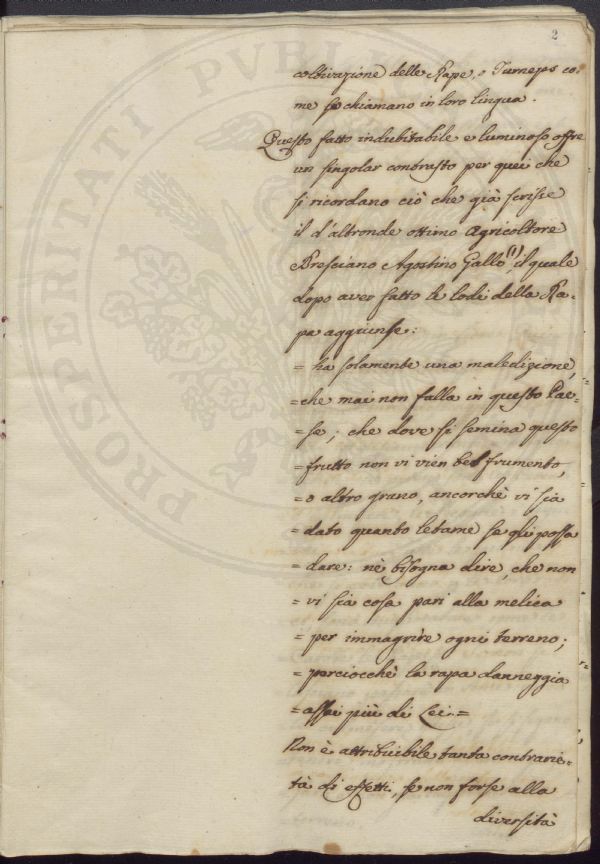 2
coltivazione delle Rape, o Turneps co-
me si chiamano in loro lingua.
Questo fatto indubitabile e luminoso offre
un singolar contrasto per quei che
si ricordano ciò che già scrisse
il d'altronde ottimo Agricoltore
Bresciano Agostino Gallo (1), il quale
dopo aver fatto le lodi della Ra-
pa aggiunse:
= ha solamente una maledizione,
= che mai non falla in questo Pae-
= se; che dove si semina questo
= frutto non vi vien bel frumento,
= o altro grano, ancorchè vi sia
= dato quanto letame se gli possa
= dare: nè bisogna dire, che non
= vi sia cosa pari alla melica
= per immagrire ogni terreno;
= perciocchè la rapa danneggia
= assai più di Lei. =
Non è attribuibile tanta contrarie-
tà di effetti, se non forse alla
diversità
PROSPERITATI PVBLI